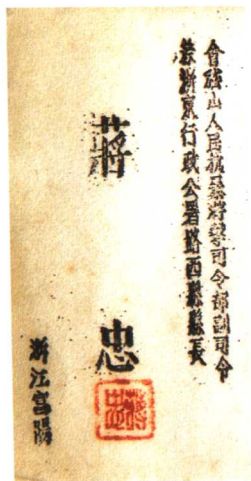 會稽山人民抗暴游擊司令部副司令
兼浙東行政公署路西縣縣長
蔣忠
浙江富陽